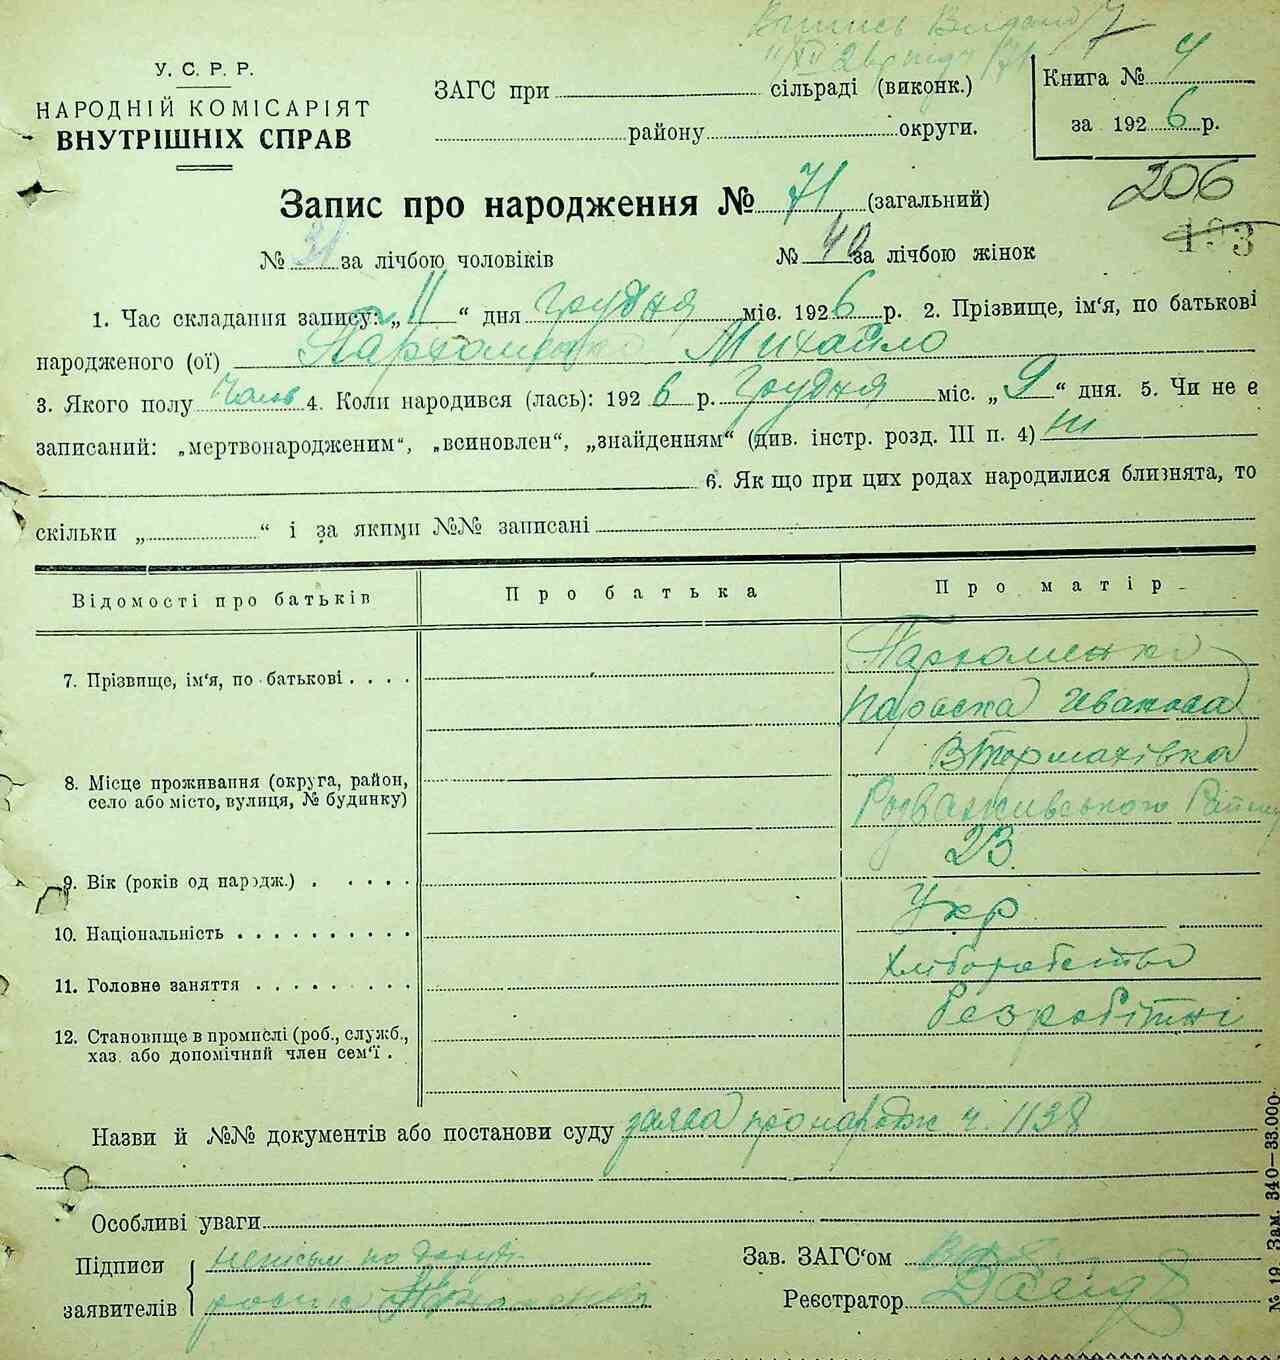 Випись Видана
7
У. С. Р. Р.
НАРОДНІЙ КОМІСАРІЯТ
ВНУТРІШНІХ СПРАВ
ЗАГС при сільраді (виконк.)
району округи.
Книга № 4
за 1926 р.
Запис про народження № 71 (загальний)
206
193
№ 31 за лічбою чоловіків № 40 за лічбою жінок
1. Час складання запису: „11“ дня Грудня міс. 1926 р. 2. Прізвище, ім‘я, по батькові
народженого (ої) Пархоменко Михайло
3. Якого полу Чолов 4. Коли народився (лась): 1926 р. Грудня міс. „9“ дня. 5. Чи не є
записаний: „мертвонародженим“, „всиновлен“, „знайденням“ (див. інстр. розд. III п. 4) ні
6. Як що при цих родах народилися близнята, то
скільки „ “ і за якими №№ записані
Відомості про батьків Про батька Про матір
7. Прізвище, ім‘я, по батькові . . . . Пархоменко
Параска Иванова
8. Місце проживання (округа, район, село або місто, вулиця, № будинку) Термахівка
Розважівського Району
9. Вік (років од народж.) . . . . . 23
10. Національність . . . . . . . . . . Укр
11. Головне заняття . . . . . . . . . хліборобство
12. Становище в промислі (роб., служб., хаз. або допомічний член сем‘ї . безробітні
Назви й №№ документів або постанови суду заява про народж ч. 1138
Особливі уваги
Підписи заявителів неписьм по
Пархоменко
Зав. ЗАГС‘ом
Реєстратор
№ 19. Зам. 340—33.000.